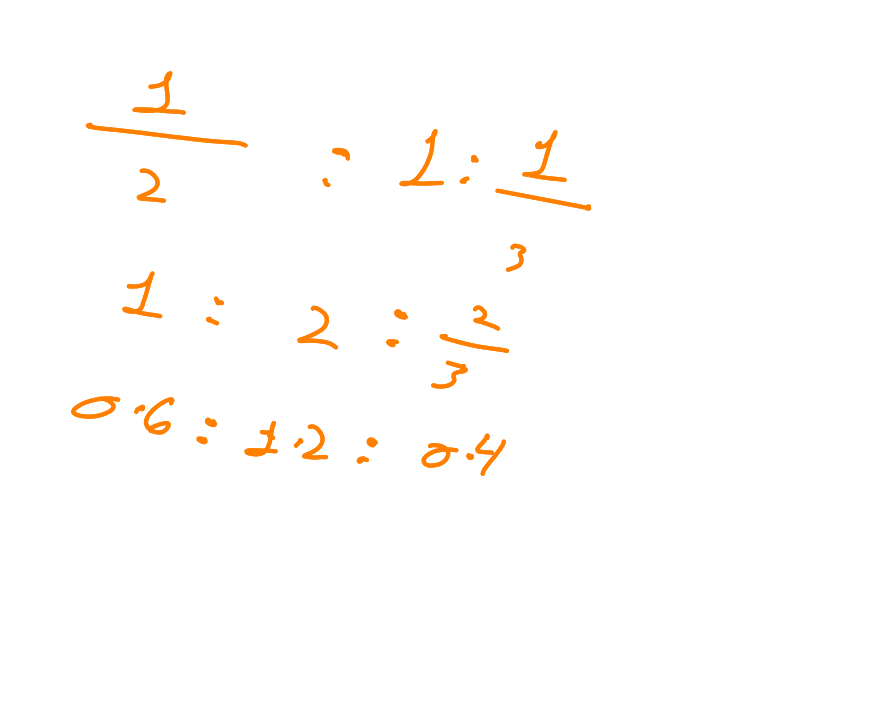 1/2 : 1 : 1/3
1 : 2 : 2/3
0.6 : 1.2 : 0.4